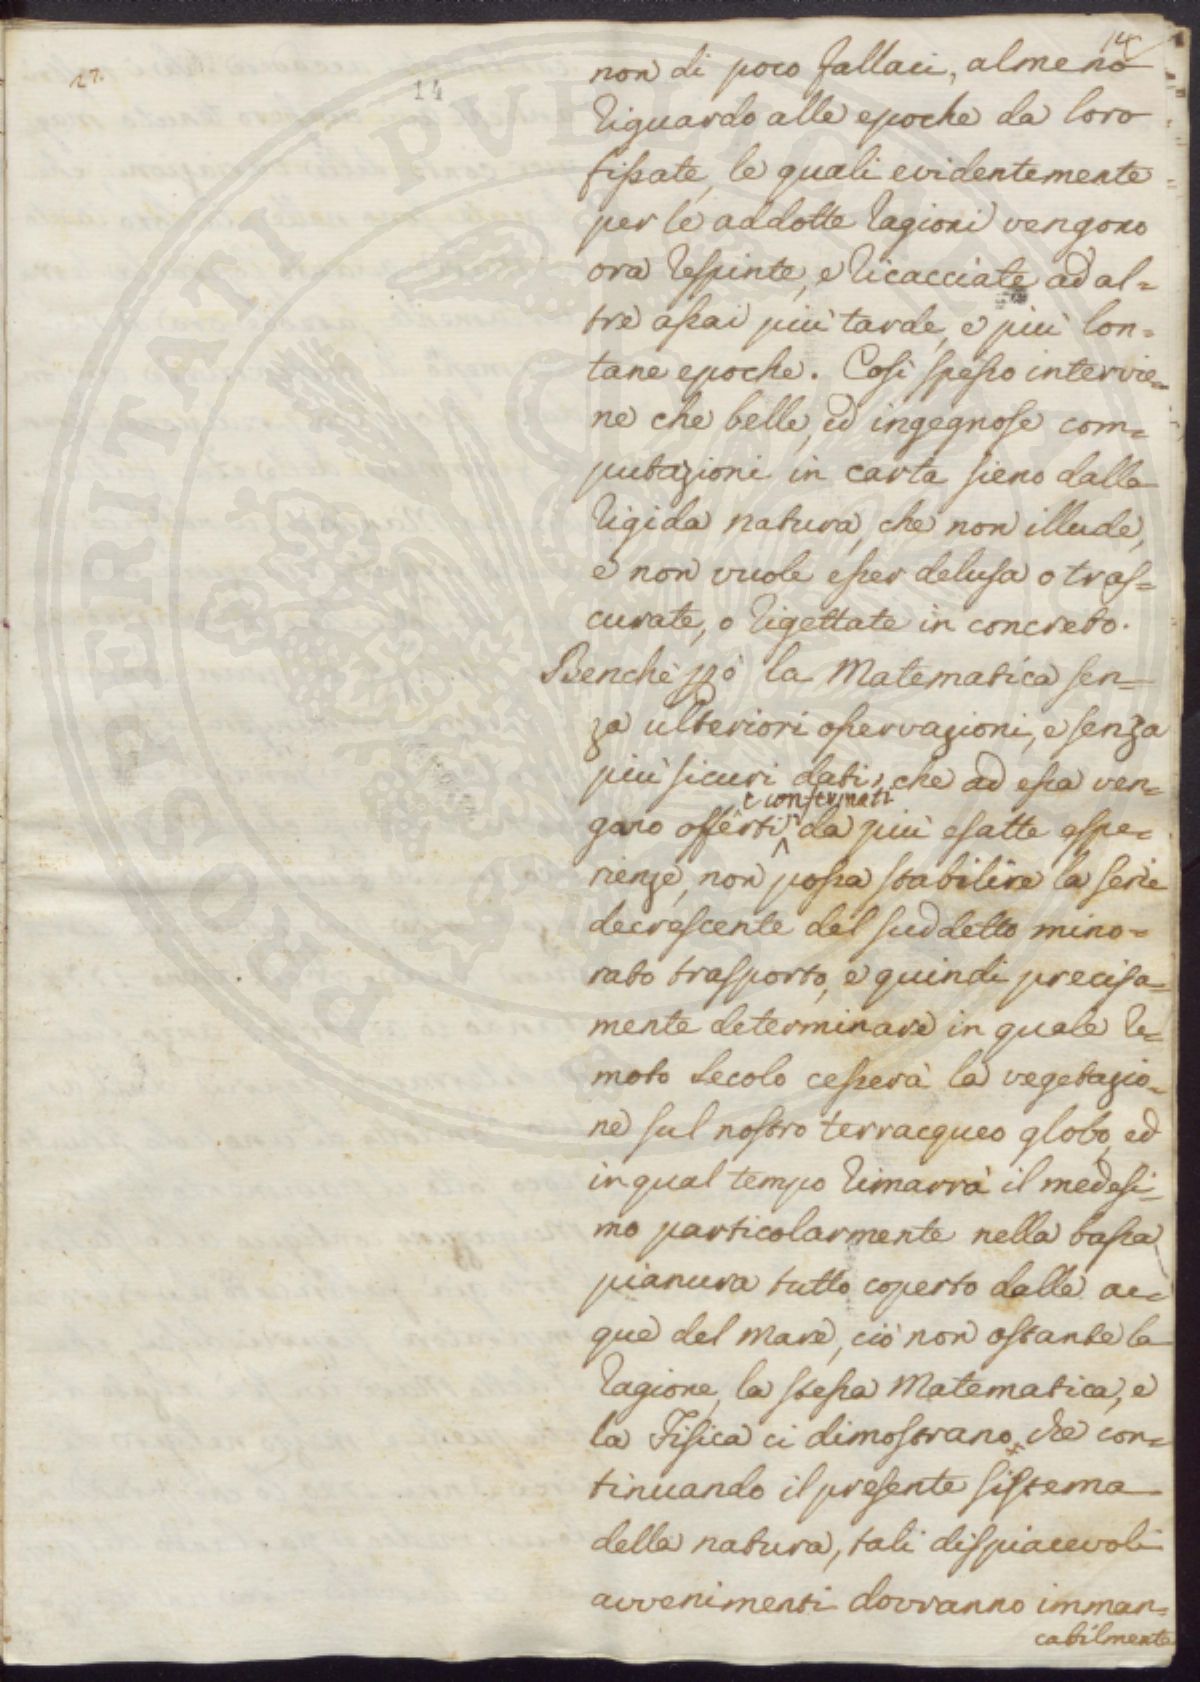 27.
14
14
non di poco fallaci, almeno
riguardo alle epoche da loro
fissate, le quali evidentemente
per le addotte ragioni vengono
ora respinte, e ricacciate ad al=
tre assai più tarde, e più lon=
tane epoche. Così spesso intervie=
ne che belle, ed ingegnose com=
putazioni in carta sieno dalla
rigida natura, che non illude,
e non vuole esser delusa o tras=
curate, o rigettate in concreto.
Benchè però la Matematica sen=
za ulteriori osservazioni, e senza
più sicuri dati, che ad essa ven=
e confermati
gano offerti da più esatte espe=
rienze, non possa stabilire la serie
decrescente del suddetto mino=
rato trasporto, e quindi precisa=
mente determinare in quale re=
moto secolo cesserà la vegetazio=
ne sul nostro terracqueo globo, ed
in qual tempo rimarrà il medesi=
mo particolarmente nella bassa
pianura tutto coperto dalle ac=
que del mare, ciò non ostante la
ragione, la stessa Matematica, e
la Fisica ci dimostrano, che con=
tinuando il presente sistema
della natura, tali dispiacevoli
avvenimenti dovranno imman=
cabilmente
PROSPERITATI PVBLICAE